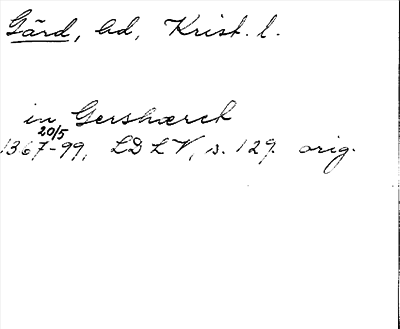 Gärd, bd, Krist. l.
in Gershærck
20/5
1367-99, LDLV, s. 129. orig.